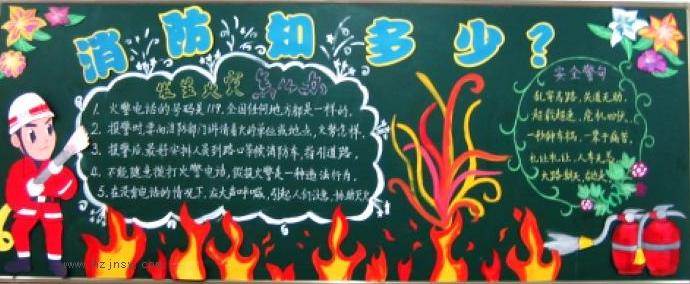 消防知多少？
发生火灾怎么办
1. 火警电话的号码是119，全国任何地方都是一样的。
2. 报警时要向消防部门讲清着火的单位或地点，火势怎样。
3. 报警后，最好安排人员到路口等候消防车，指引道路。
4. 不能随意拨打火警电话，假报火警是一种违法行为。
5. 在没有电话的情况下，应大声呼喊，引起人们注意，协助灭火
安全警句
乱穿马路，失道无助，
超载超速，危机四伏，
一秒钟车祸，一辈子痛苦，
礼让礼让，人车无恙，
大路朝天，